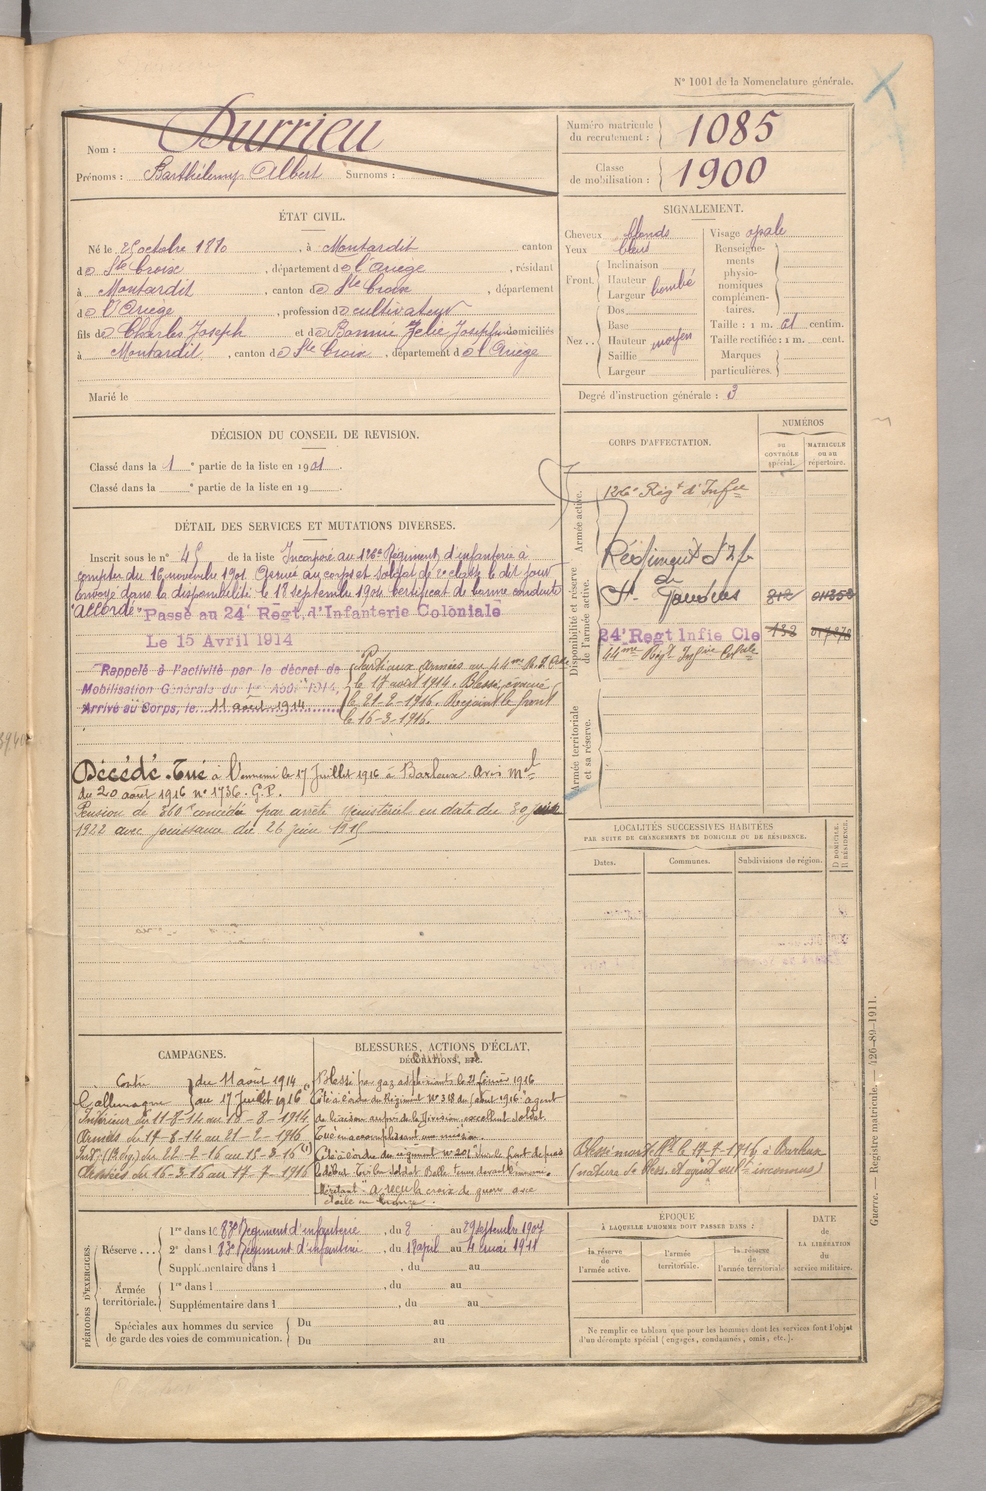 N° 1001 de la Nomenclature générale.
Nom : Durrieu
Prénoms : Barthélemy Albert Surnoms :
Numéro matricule du recrutement : 1085
Classe de mobilisation : 1900
ÉTAT CIVIL.
Né le octobre , à Montardit canton
d Ste Croix , département d l'Ariège , résidant
à Montardit , canton d Ste Croix , département
d l'Ariège , profession d cultivateur
fils de Charles Joseph et d Bonnie domiciliés
à Montardit , canton d Ste Croix , département d l'Ariège
Marié le
SIGNALEMENT.
Cheveux blonds
Yeux bleus
Front. Inclinaison
Hauteur
Largeur bombé
Nez . . Dos
Base
Hauteur moyen
Saillie
Largeur
Visage opale
Renseignements physionomiques complémentaires.
Taille : 1 m. 61 centim.
Taille rectifiée : 1 m. cent.
Marques particulières.
Degré d'instruction générale : 3
DÉCISION DU CONSEIL DE REVISION.
Classé dans la 1 e partie de la liste en 1901.
Classé dans la e partie de la liste en 19
DÉTAIL DES SERVICES ET MUTATIONS DIVERSES.
Inscrit sous le n° 45 de la liste Incorporé au 126e Régiment d'infanterie à
compter du 16 novembre 1901 Arrivé au corps et soldat de 2e classe le dit jour
Envoyé dans la disponibilité le 18 septembre 1904 Certificat de bonne conduite
"accordé" Passé au 24e Régt, d'Infanterie Coloniale
Le 15 Avril 1914
Rappelé à l'activité par le décret de
Mobilisation Générale du 1er Août 1914,
Arrivé au Corps, le 11 août 1914
Parti aux armées au 44me R.I. Cole
le 17 août 1914. Blessé, évacué
le 21-2-1916. Rejoint le front
le 16-3-1916.
Décédé. Tué à l'ennemi le 17 Juillet 1916 à Barleux. Avis mel
du 20 août 1916 n° 1736. G.P.
Pension de concédée par arrêté ministériel en date du 30 juin
1922 avec jouissance du 26 juin
CORPS D'AFFECTATION.
NUMÉROS
DU CONTRÔLE spécial.
MATRICULE OU AU répertoire.
Armée active.
126e Régt d'Infie
Disponibilité et réserve de l'armée active.
Régiment d'Inf
de
St. Gaudens 812
24e Regt Infie Cle 132
44me Régt Infie Colale
Armée territoriale et sa réserve.
LOCALITÉS SUCCESSIVES HABITÉES
PAR SUITE DE CHANGEMENTS DE DOMICILE OU DE RÉSIDENCE.
Dates. Communes. Subdivisions de région. D DOMICILE. R RÉSIDENCE.
Blessé mortellt le 17-7-1916 à Barleux
(nature de bless. et agent vulnt inconnus)
CAMPAGNES.
Contre l'allemagne du 11 août 1914
au 17 Juillet 1916
Intérieur du 11-8-14 au 16-8-1914
Armées du 17-8-14 au 21-2-1916
Int. (Bl. ) du 22-2-16 au 15-3-16 (1)
Armées du 16-3-16 au 17-7-1916
BLESSURES, ACTIONS D'ÉCLAT,
DÉCORATIONS, ETC.
Blessé par gaz asphyxiants le 21 février 1916
Cité à l'ordre du Régiment N° 318 du août 1916 "agent
de liaison auprès de la Division, excellent soldat.
Tué en accomplissant une mission.
Cité à l'ordre du régiment n° 201
le début. Très bon soldat. Belle tenue devant l'ennemi.
Méritant" A reçu la croix de guerre avec
étoile en bronze.
PÉRIODES D'EXERCICES.
Réserve . . . 1re dans l 83e Régiment d'infanterie , du 2 au 29 septembre 1907
2e dans l 83e Régiment d'infanterie , du 18 april au 4 mai 1911
Supplémentaire dans l , du au
Armée territoriale. 1re dans l , du au
Supplémentaire dans l , du au
Spéciales aux hommes du service de garde des voies de communication. Du au
Du au
ÉPOQUE
À LAQUELLE L'HOMME DOIT PASSER DANS :
la réserve de l'armée active. l'armée territoriale. la réserve de l'armée territoriale
DATE de LA LIBÉRATION du service militaire.
Ne remplir ce tableau que pour les hommes dont les services font l'objet
d'un décompte spécial (engagés, condamnés, omis, etc.).
Guerre. — Registre matricule. — 426-89-1911.